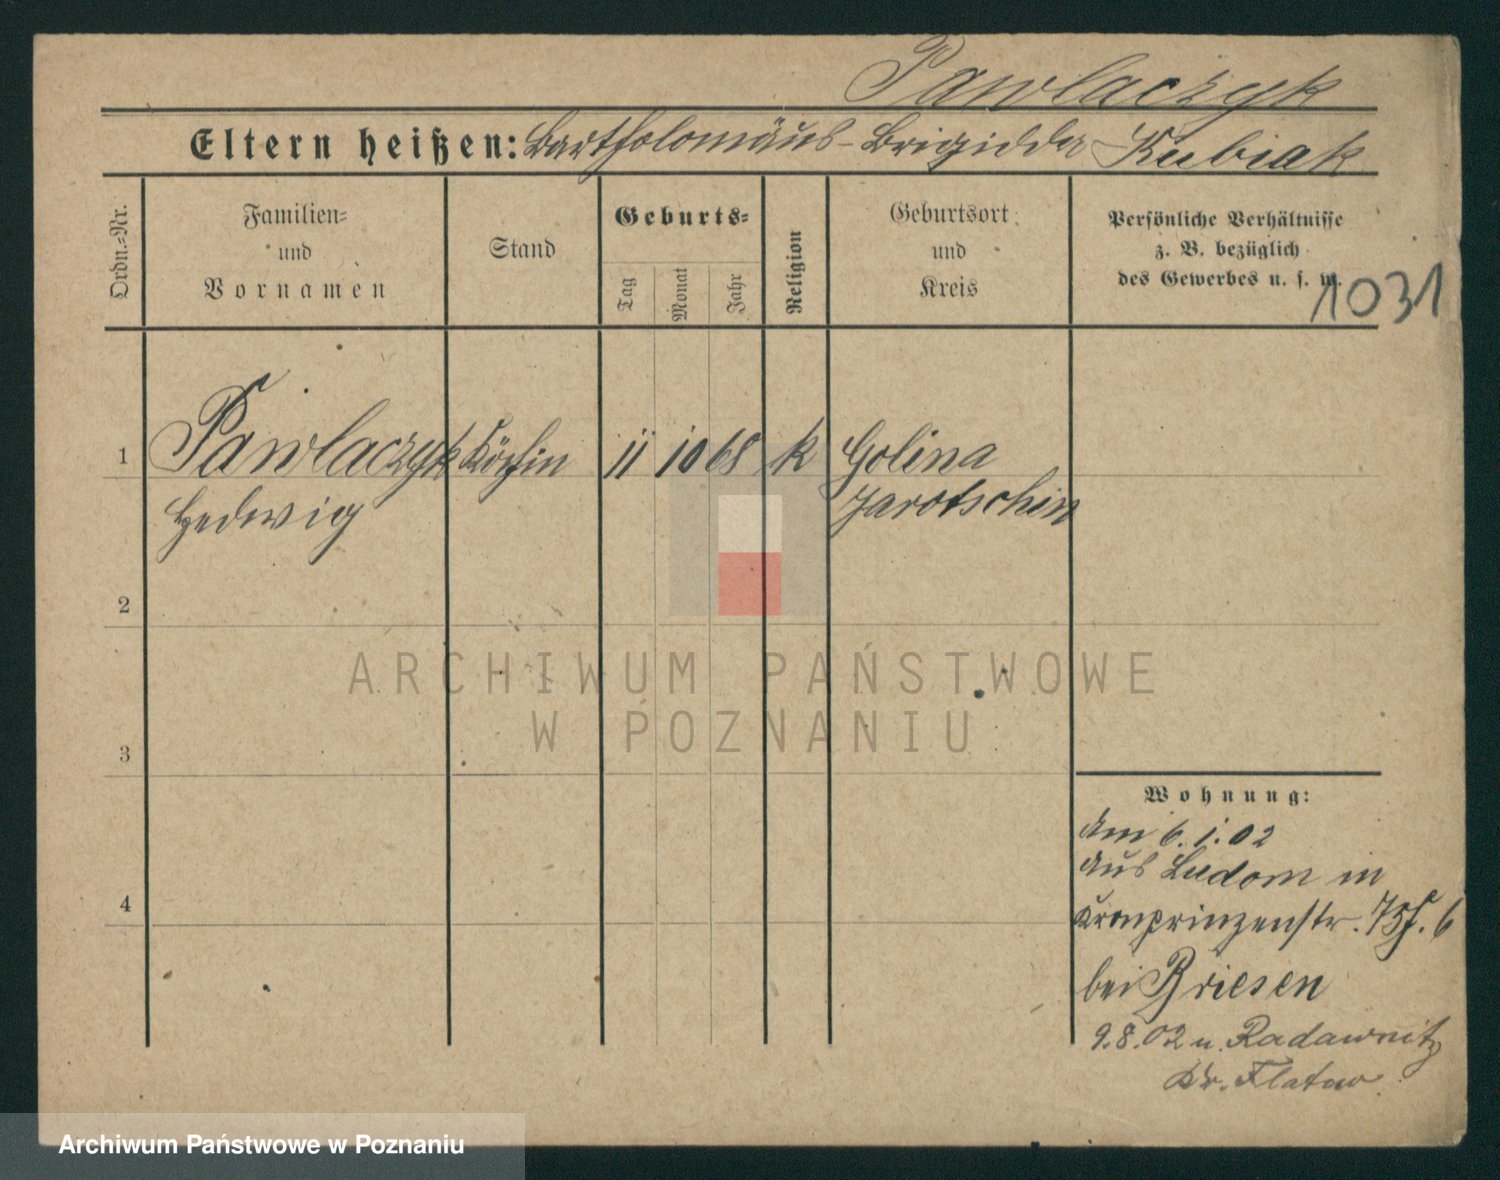 Pawlaczyk
Eltern heißen: Bartholomäus - Brigidda Kubiak
Ordn.-Nr.
Familien-
und
Vornamen
Stand
Geburts-
Tag
Monat
Jahr
Religion
Geburtsort
und
Kreis
Persönliche Verhältnisse
z. B. bezüglich
des Gewerbes u. s. w.
1031
1 Pawlaczyk Köchin 11 10 68 k Golina
Hedwig Jarotschin
2
3
4
ARCHIWUM PAŃSTWOWE
W POZNANIU
Wohnung:
Am 6. 1. 02
aus Ludom in
Kronprinzenstr. 6
bei Briesen
9. 8. 02 n. Radawnitz
Kr. Flatow
Archiwum Państwowe w Poznaniu